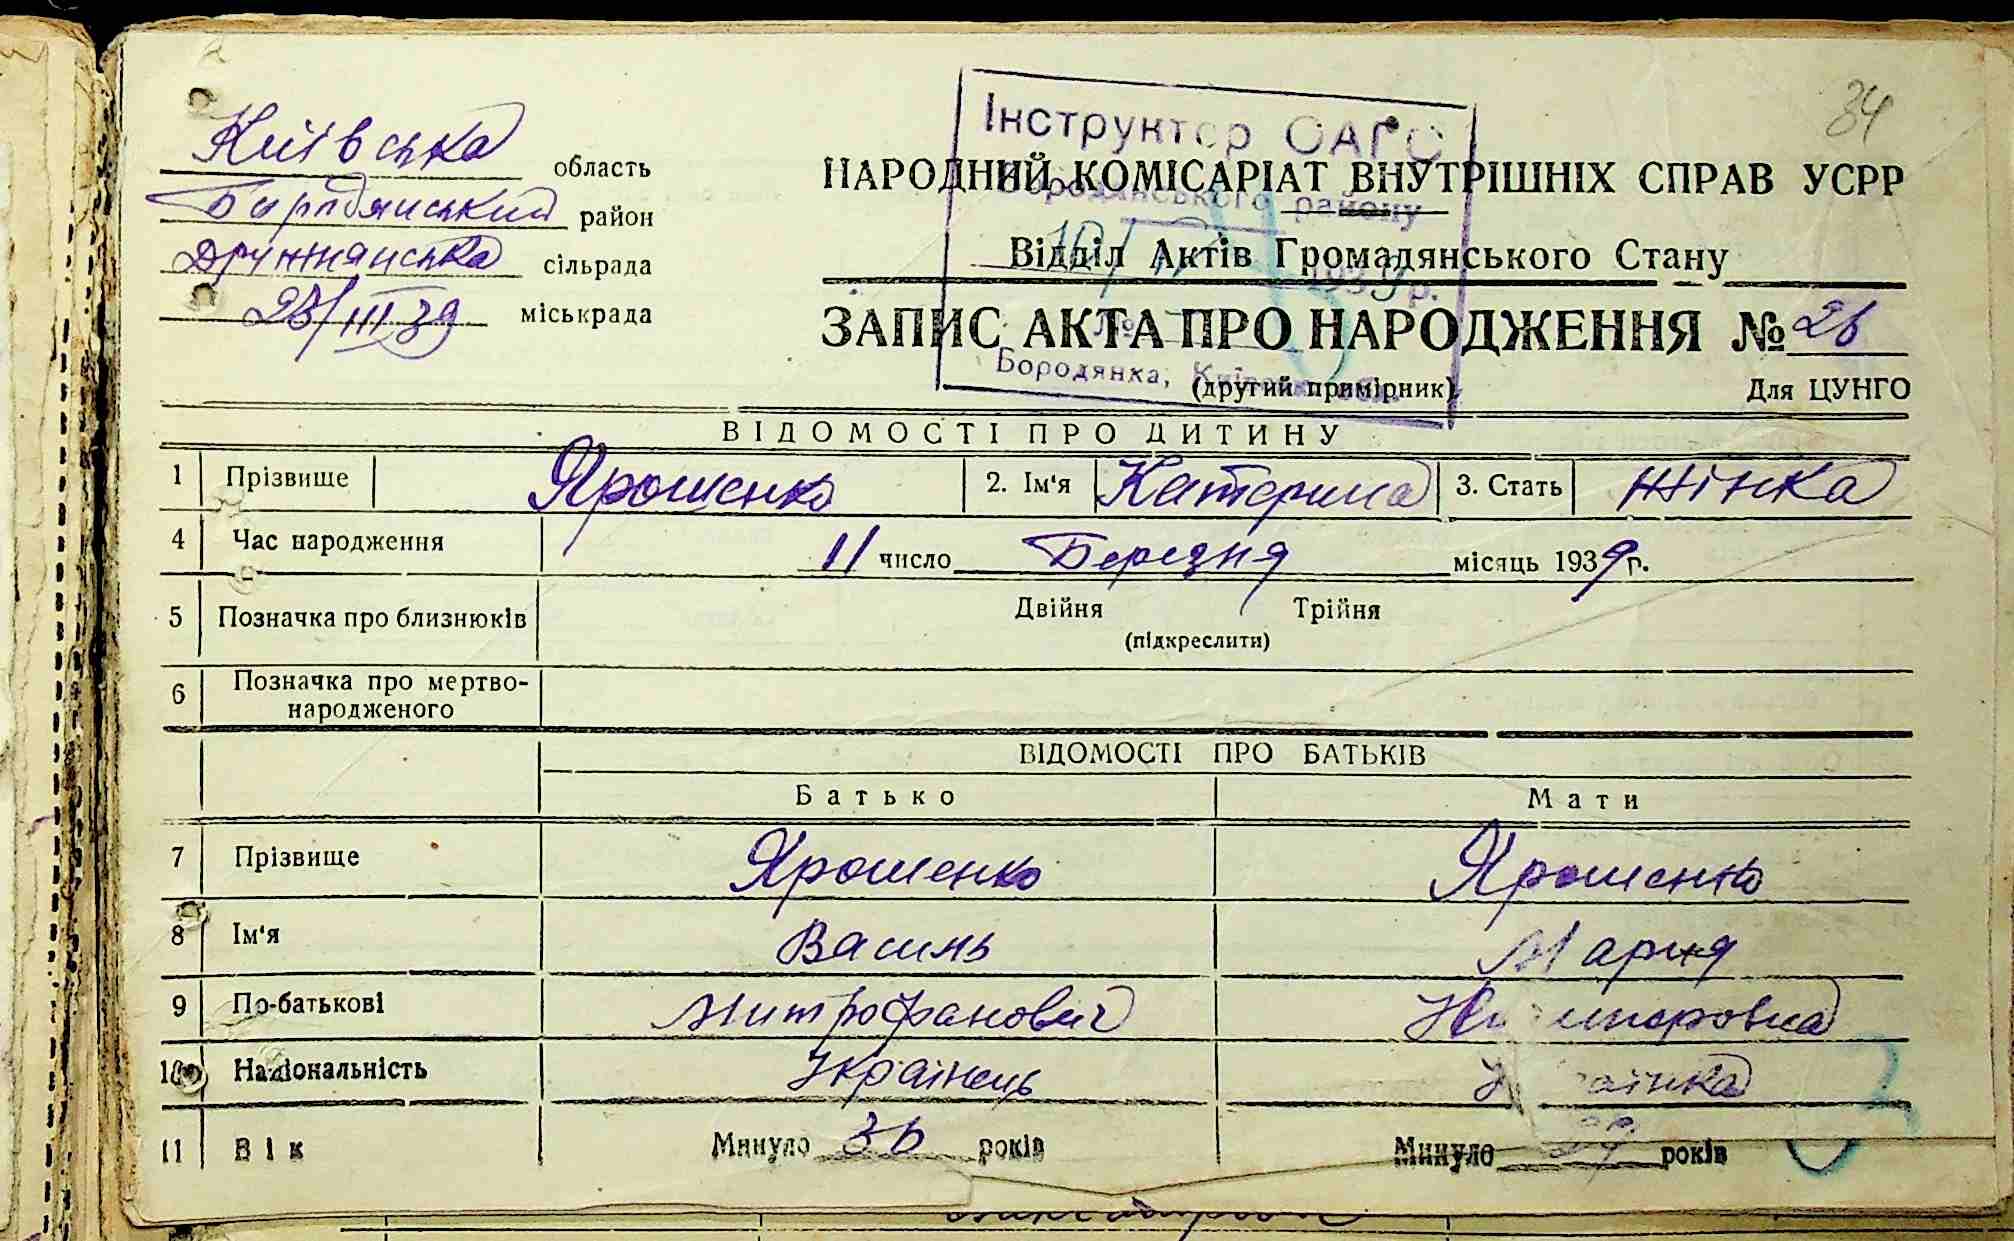 34
Інструктор ОАГС
Бородянського району
193 р.
№
Бородянка,
Київська область
Бородянський район
Дружнянська сільрада
міськрада
28/III 39
НАРОДНИЙ КОМІСАРІАТ ВНУТРІШНІХ СПРАВ УСРР
Відділ Актів Громадянського Стану
ЗАПИС АКТА ПРО НАРОДЖЕННЯ № 26
(другий примірник) Для ЦУНГО
ВІДОМОСТІ ПРО ДИТИНУ
1 Прізвище Ярошенко 2. Ім'я Катерина 3. Стать жінка
4 Час народження 11 число Березня місяць 1939 г.
5 Позначка про близнюків Двійня Трійня
(підкреслити)
6 Позначка про мертво-
народженого
ВІДОМОСТІ ПРО БАТЬКІВ
Батько Мати
7 Прізвище Ярошенко Ярошенко
8 Ім'я Василь Мария
9 По-батькові Митрофанович
10 Національність Українець
11 Вік Минуло 36 років Минуло років